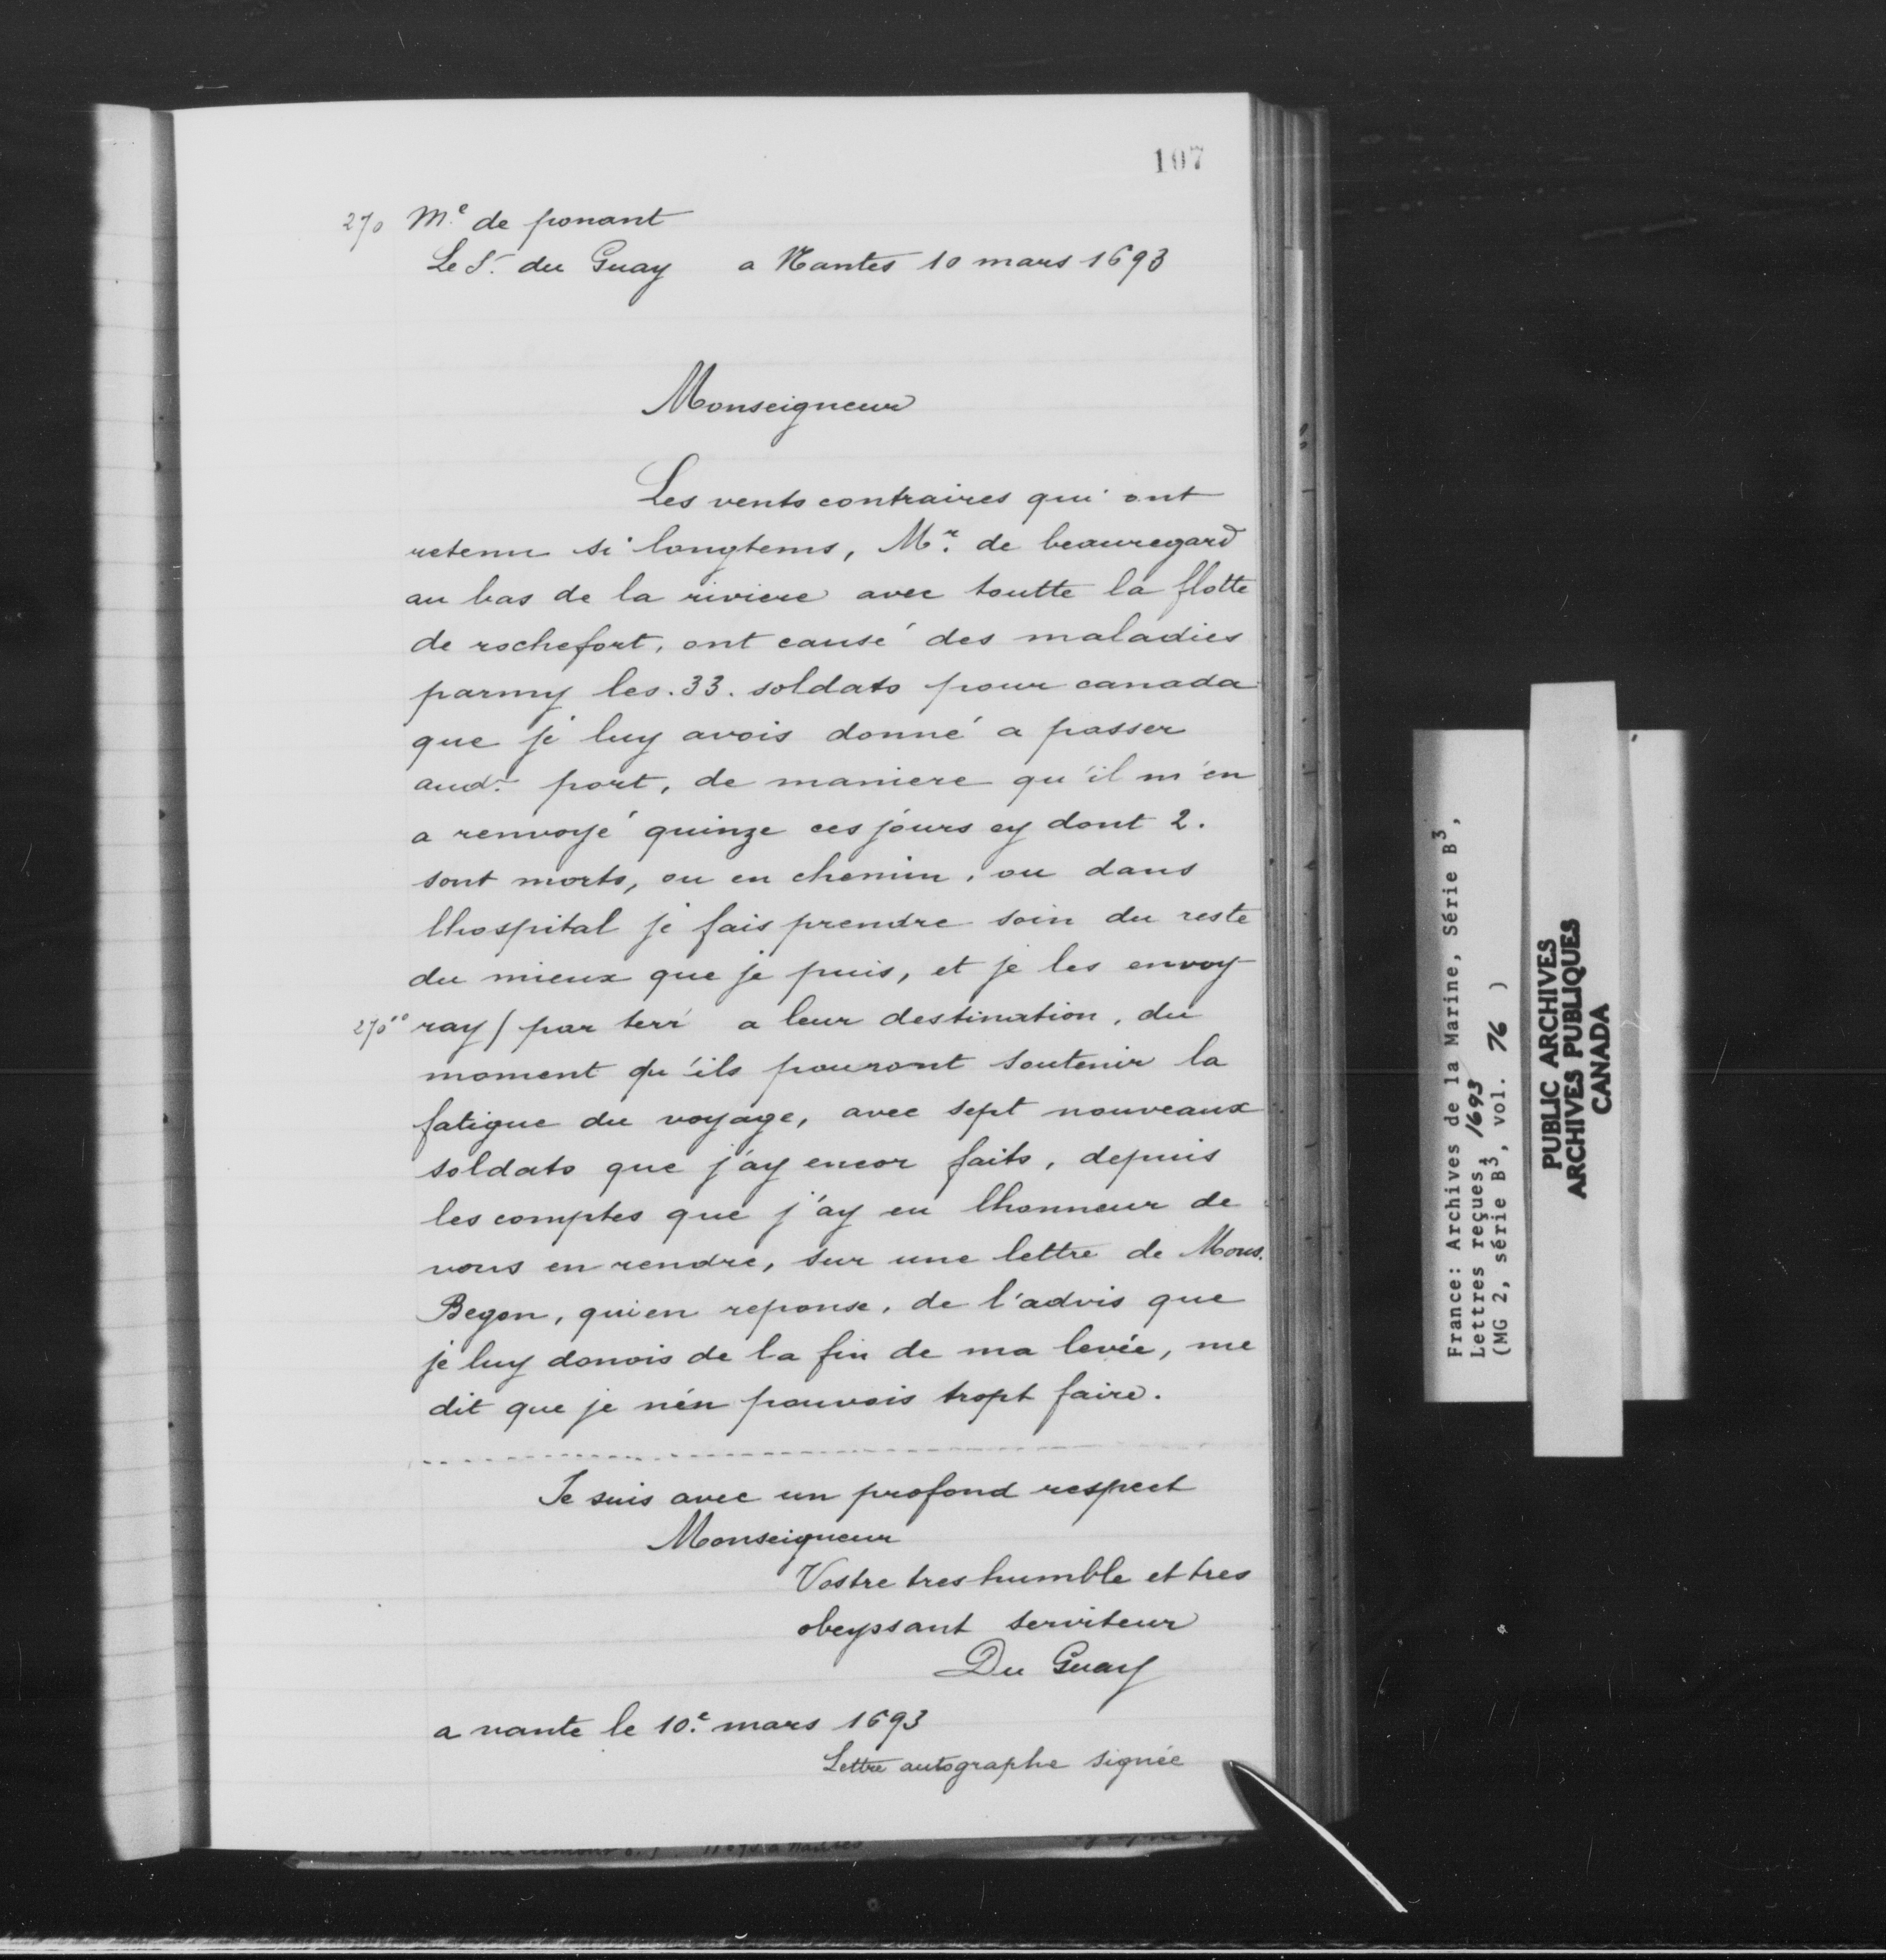 107
270 M.e de ponant
Le Sr. du Guay a Nantes 10 mars 1693
Monseigneur
Les vents contraires qui ont
retenu si longtems, Mr. de beauregard
au bas de la riviere avec toutte la flotte
de rochefort, ont causé des maladies
parmy les .33. soldats pour canada
que je luy avois donné a passer
aud.t port, de maniere qu'il m'en
a renvoyé quinze ces jours cy dont 2.
sont morts, ou en chemin, ou dans
lhospital je fais prendre soin du reste
du mieux que je puis, et je les envoy
270vo ray / par terr a leur destination, du
moment qu'ils pouront soutenir la
fatigue du voyage, avec sept nouveaux
soldats que j'ay encor faits, depuis
les comptes que j'ay eu lhonneur de
vous en rendre, sur une lettre de Mons.
Begon, qui en reponse, de l'advis que
je luy donois de la fin de ma levée, me
dit que je n'en pouvois tropt faire.
Je suis avec un profond respect
Monseigneur
Vostre tres humble et tres
obeyssant serviteur
Du Guay
a nante le 10.e mars 1693
Lettre autographe signée
France: Archives de la Marine, Série B3,
Lettres reçues, 1693
(MG 2, série B3, vol. 76 )
PUBLIC ARCHIVES
ARCHIVES PUBLIQUES
CANADA